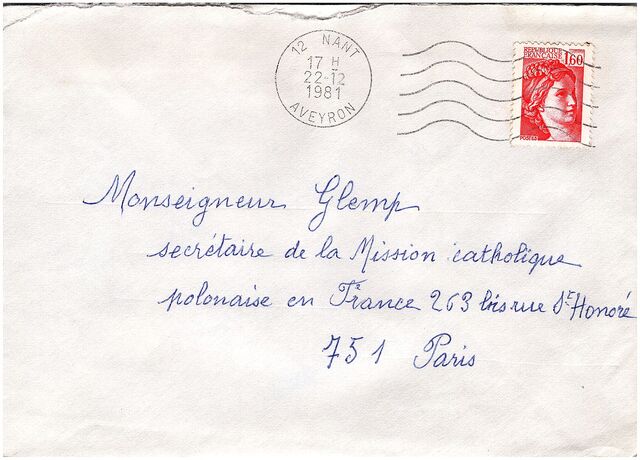 12 NANT
17 H
22-12
1981
AVEYRON
REPUBLIQUE
FRANÇAISE
1,60
POSTES
Monseigneur Glemp
secrétaire de la Mission catholique
polonaise en France 263 bis rue St Honoré
751 Paris